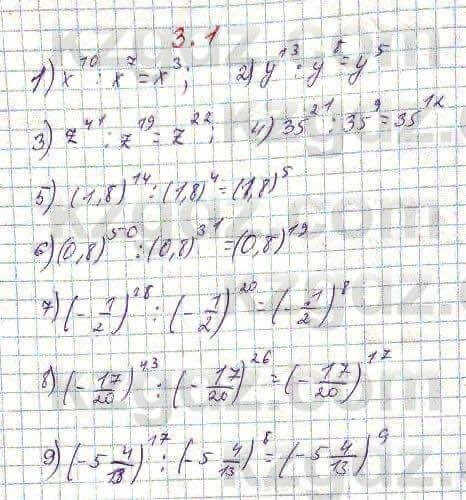 3.1
1) x¹⁰ : x⁷ = x³; 2) y¹³ : y⁸ = y⁵
3) z⁴¹ : z¹⁹ = z²²; 4) 35²¹ : 35⁹ = 35¹²
5) (1,8)¹⁴ : (1,8)⁴ = (1,8)⁵
6) (0,8)⁵⁰ : (0,8)³¹ = (0,8)¹⁹
7) (-1/2)²⁸ : (-1/2)²⁰ = (-1/2)⁸
8) (-17/20)⁴³ : (-17/20)²⁶ = (-17/20)¹⁷
9) (-5 4/13)¹⁷ : (-5 4/13)⁸ = (-5 4/13)⁹